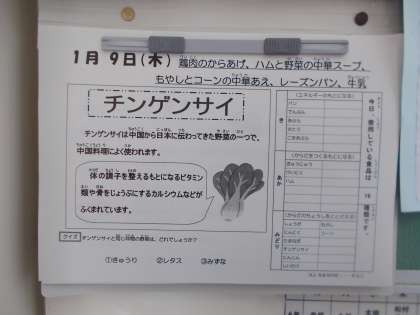 1月 9日(木) 鶏肉のからあげ、ハムと野菜の中華スープ、
もやしとコーンの中華あえ、レーズンパン、牛乳
チンゲンサイ
チンゲンサイは中国から日本に伝わってきた野菜の一つで、
中国料理によく使われます。
体の調子を整えるもとになるビタミン
類や骨をじょうぶにするカルシウムなどが
ふくまれています。
クイズ チンゲンサイと同じ仲間の野菜は、どれでしょうか?
①きゅうり ②レタス ③みずな
今日、使用している食品は
種類です。
き
(エネルギーのもとになる)
パン
でんぷん
あぶら
さとう
ごまあぶら
あか
(からだをつくるもとになる)
ぎゅうにゅう
とりにく
ハム
みどり
しょうが
もやし
にんにく
コーン
たまねぎ
チンゲンサイ
にんじん